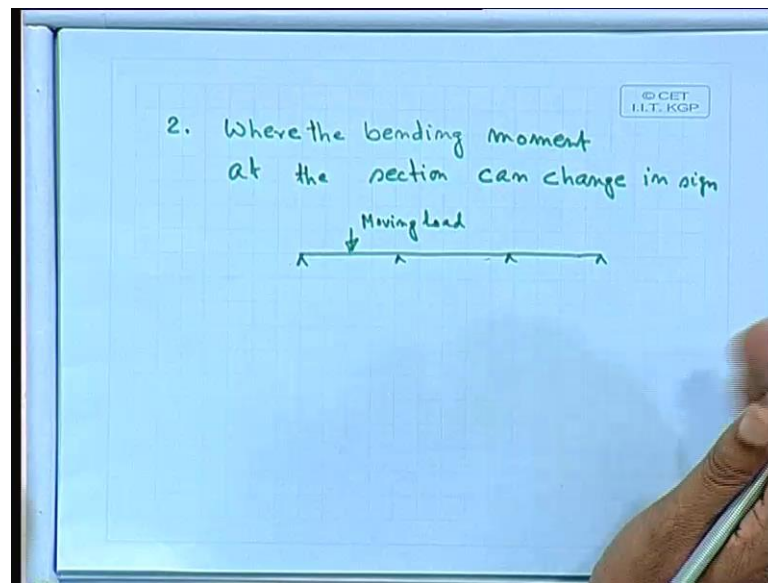 © CET
I.I.T. KGP
2. Where the bending moment
at the section can change in sign
Moving load